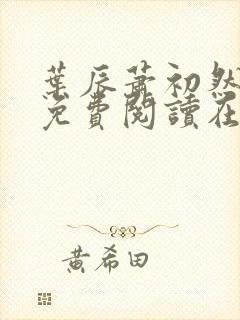 葉辰蕭初然
免費閱讀在
黃希田